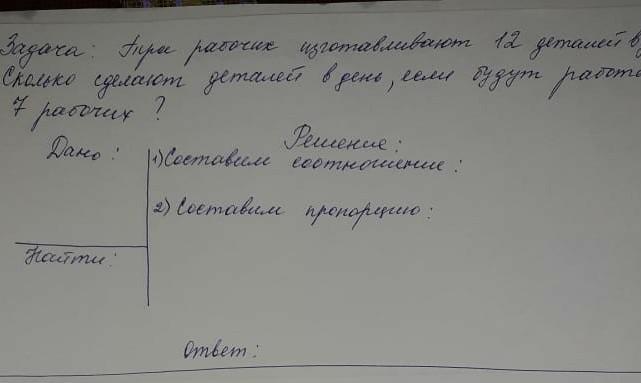 Задача: Три рабочих изготавливают 12 деталей в
Сколько сделают деталей в день, если будут работа
7 рабочих?
Решение:
Дано: 1) Составим соотношение:
2) Составим пропорцию:
Найти:
Ответ: